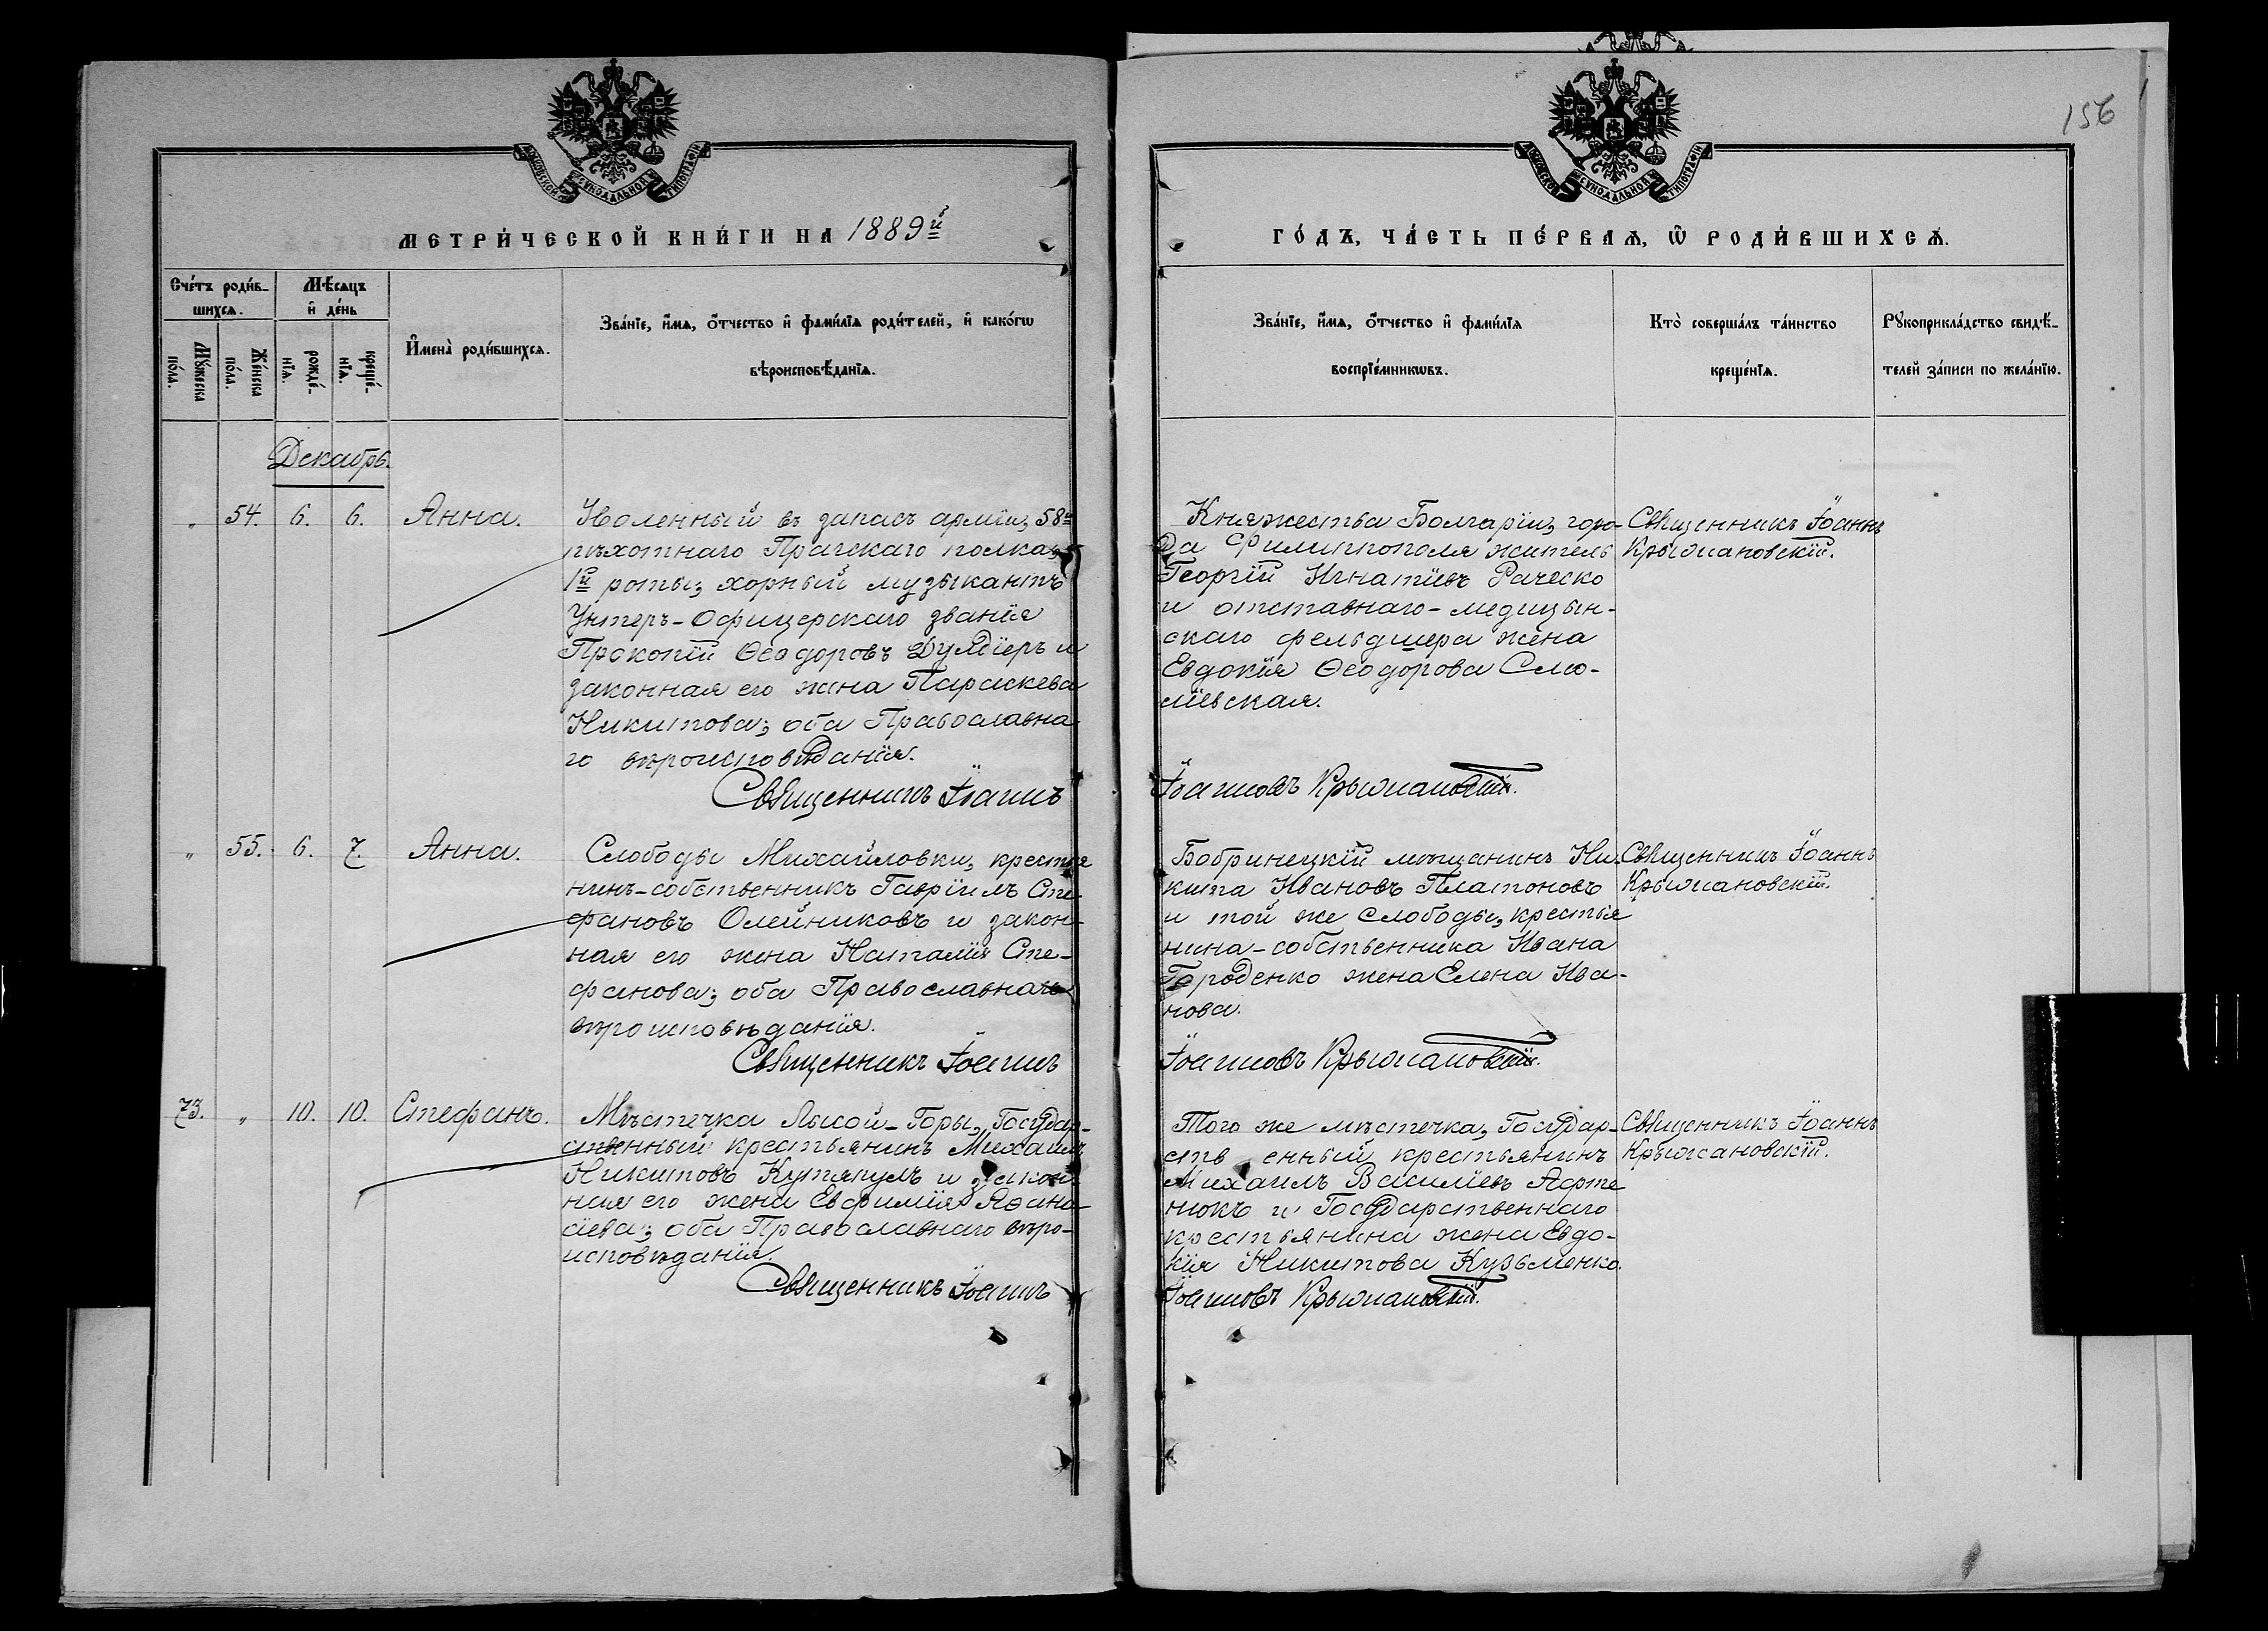 156
МОСКОВСКОЙ СѴНОДАЛЬНОЙ ТИПОГРАФІИ
МОСКОВСКОЙ СѴНОДАЛЬНОЙ ТИПОГРАФІИ
МЕТРИ́ЧЕСКОЙ КНИ́ГИ НА 1889й
ГО́ДЪ, ЧА́СТЬ ПЕ́РВАЯ, Ѿ РОДИ́ВШИХСЯ.
Сче́тъ роди́в-
шихся.
Мѣ́сяцъ
и҆ де́нь
Мꙋ́жеска
по́ла.
Же́нска
по́ла.
рожде́-
нїя.
креще́-
нїя.
И҆мена̀ роди́вшихся.
Зва́нїе, и҆́мя, о҆́тчество и҆ фами́лїя роди́телей, и҆ како́гѡ
вѣроисповѣ́данїя.
Зва́нїе, и҆́мя, о҆́тчество и҆ фами́лїя
воспрїе́мникѡвъ.
Кто̀ соверша́лъ та́инство
креще́нїя.
Рꙋкоприкла́дство свидѣ́-
телей за́писи по жела́нїю.
Декабрь.
„ 54. 6. 6. Анна.
Уволенный въ запасъ арміи, 58й
пѣхотнаго Прагскаго полка,
1й роты, хорный музыкантъ
Унтеръ-Офицерскаго званія
Прокопій Ѳеодоровъ Дулдіеръ и
законная его жена Параскева
Никитова; оба Православна
го вѣроисповѣданія.
Священникъ Іоаннъ
Княжества Болгаріи, горо-
да Филиппополя житель
Георгій Игнатіевъ Раческо
и отставнаго-медицын-
скаго фельдшера жена
Евдокія Ѳеодорова Смо-
лівская.
Іоанновъ Крыжановскій.
Священникъ Іоаннъ
Крыжановскій.
„ 55. 6. 7. Анна.
Слободы Михайловки, крестья
нинъ-собственникъ Гавріилъ Сте
фановъ Олейниковъ и закон-
ная его жена Наталія Сте-
фанова; оба Православнаго
вѣроисповѣданія.
Священникъ Іоаннъ
Бобринецкій мѣщанинъ Ни-
кита Ивановъ Платоновъ
и той же слободы, крестья
нина-собственника Ивана
Городенко жена Елена Ива-
нова.
Іоанновъ Крыжановскій.
Священникъ Іоаннъ
Крыжановскій.
73. „ 10. 10. Стефанъ.
Мѣстечка Лысой-Горы, Государ-
ственный крестьянинъ Михаилъ
Никитовъ Кутякулъ и закон-
ная его жена Евфимія Аѳана-
сіева; оба Православнаго вѣро-
исповѣданія.
Священникъ Іоаннъ
Того же мѣстечка, Государ-
ств енный крестьянинъ
Михаилъ Василіевъ Афте
нюкъ и Государственнаго
крестьянина жена Евдо-
кія Никитова Кузьменко.
Іоанновъ Крыжановскій.
Священникъ Іоаннъ
Крыжановскій.